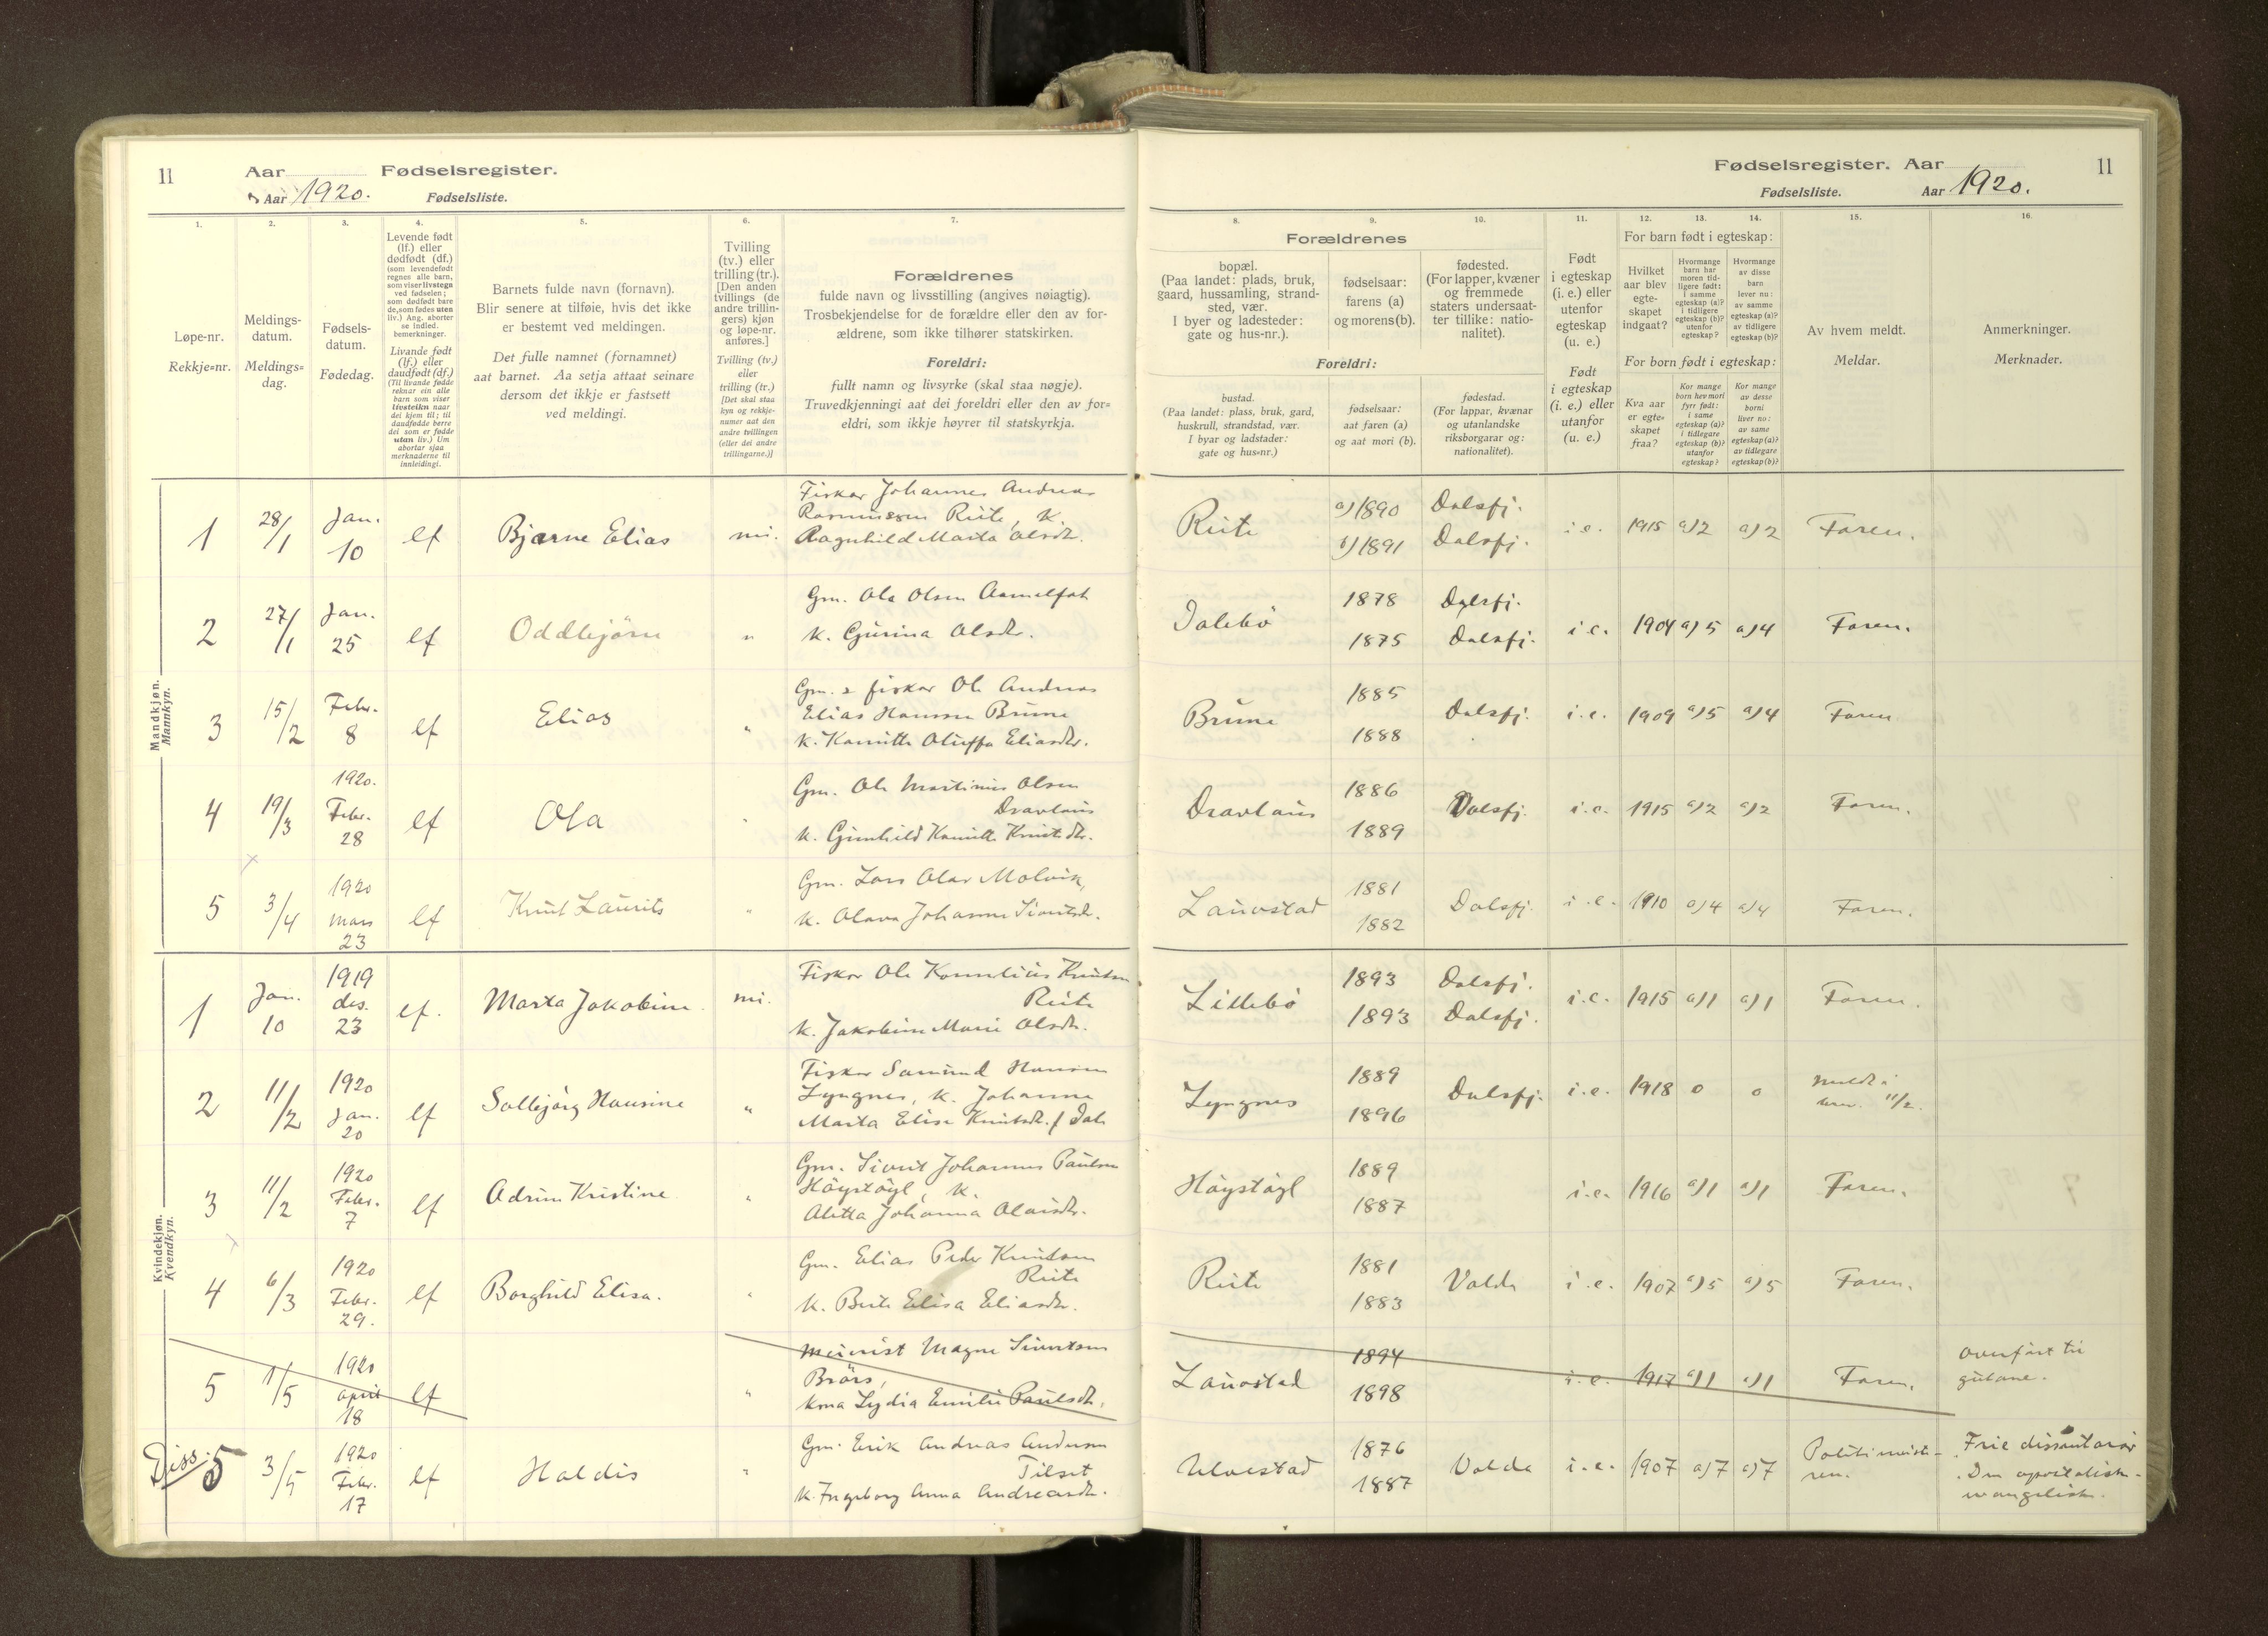 11 Aar Fødselsregister.
Aar 1920. Fødselsliste.
Fødselsregister. Aar 11
Fødselsliste. Aar 1920.
1. 2. 3. 4. 5. 6. 7.
Løpe-nr.
Rekkje=nr.
Meldings-
datum.
Meldings=
dag.
Fødsels-
datum.
Fødedag.
Levende født
(lf.) eller
dødfødt (df.)
(som levendefødt
regnes alle barn,
som viser livstegn
ved fødselen;
som dødfødt bare
de, som fødes uten
liv.) Ang. aborter
se indled.
bemerkninger.
Livande født
(lf.) eller
daudfødt (df.)
(Til livande fødde
reknar ein alle
barn som viser
livsteikn naar
dei kjem til; til
daudfødde berre
dei som er fødde
utan liv.) Um
abortar sjaa
merknaderne til
innleidingi.
Barnets fulde navn (fornavn).
Blir senere at tilføie, hvis det ikke
er bestemt ved meldingen.
Det fulle namnet (fornamnet)
aat barnet. Aa setja attaat seinare
dersom det ikkje er fastsett
ved meldingi.
Tvilling
(tv.) eller
trilling (tr.).
[Den anden
tvillings (de
andre trillin-
gers) kjøn
og løpe-nr.
anføres.]
Tvilling (tv.)
eller
trilling (tr.)
[Det skal staa
kyn og rekkje-
numer aat den
andre tvillingen
(eller dei andre
trillingarne.)]
Forældrenes
fulde navn og livsstilling (angives nøiagtig).
Trosbekjendelse for de forældre eller den av for-
ældrene, som ikke tilhører statskirken.
Foreldri:
fullt namn og livsyrke (skal staa nøgje).
Truvedkjenningi aat dei foreldri eller den av for=
eldri, som ikkje høyrer til statskyrkja.
8. 9. 10. 11. 12. 13. 14. 15. 16.
Forældrenes
bopæl.
(Paa landet: plads, bruk,
gaard, hussamling, strand-
sted, vær.
I byer og ladesteder:
gate og hus-nr.).
fødselsaar:
farens (a)
og morens (b).
fødested.
(For lapper, kvæner
og fremmede
staters undersaat-
ter tillike: natio-
nalitet).
Foreldri:
bustad.
(Paa landet: plass, bruk, gard,
huskrull, strandstad, vær.
I byar og ladstader:
gate og hus=nr.)
fødselsaar:
aat faren (a)
og aat mori (b).
fødestad.
(For lappar, kvænar
og utanlandske
riksborgarar og:
nationalitet).
Født
i egteskap
(i. e.) eller
utenfor
egteskap
(u. e.)
Født
i egteskap
(i. e.) eller
utanfor
(u. e.)
For barn født i egteskap:
Hvilket
aar blev
egte-
skapet
indgaat?
Hvormange
barn har
moren tid-
ligere født:
i samme
egteskap (a)?
i tidligere
egteskap (b)?
utenfor
egteskap?
Hvormange
av disse
barn
lever nu:
av samme
egteskap (a)?
av tidligere
egteskap (b)?
For born født i egteskap:
Kva aar
er egte=
skapet
fraa?
Kor mange
born hev mori
fyrr født:
i same
egteskap (a)?
i tidlegare
egteskap (b)?
utanfor
egteskap?
Kor mange
av desse
borni
liver no:
av same
egteskap (a)?
av tidlegare
egteskap (b)?
Av hvem meldt.
Meldar.
Anmerkninger.
Merknader.
Mandkjøn.
Mannkyn.
1 28/1 Jan. 10 lf Bjarne Elias mi.
Fiskar Johannes Andreas
Rasmussen Riite, K.
Ragnhild Marta Olsdtr.
Riite a) 1890 Dalsfj. i.e. 1915 a)2 a)2 Faren.
b) 1891 Dalsfj.
2 27/1 Jan. 25 lf Oddbjörn "
Gm. Ola Olsen Aamelfot
K. Gurina Olsdtr.
Dalebö 1878 Dalsfj. i.e. 1904 a)5 a)4 Faren.
1875 Dalsfj.
3 15/2 Febr. 8 lf Elias "
Gm. & fiskar Ole Andreas
Elias Hansen Brune
K. Kamilla Oluffa Eliasdtr.
Brune 1885 Dalsfj. i.e. 1909 a)5 a)4 Faren
1888
4 19/3 1920. Febr. 28 lf Ola "
Gm. Ole Martinus Olsen
Dravlaus
K. Gunhild Kamilla Knutsdtr.
Dravlaus 1886 Dalsfj. i.e. 1915 a)2 a)2 Faren.
1889
5 3/4 1920 mars 23 lf Knut Laurits "
Gm. Lars Olav Molvik,
K. Olava Johanna Sivertsdr.
Lauvstad 1881 Dalsfj. i.e. 1910 a)4 a)4 Faren.
1882
Kvindekjøn.
Kvendkyn.
1 Jan. 10 1919 des. 23 lf. Marta Jakobine mi.
Fiskar Ole Kornelius Knutsen
Riite
K. Jakobine Marie Olsdtr.
Lillebö 1893 Dalsfj. i.e. 1915 a)1 a)1 Faren.
1893 Dalsfj.
2 11/2 1920 Jan. 20 lf Solbjörg Hansine "
Fiskar Samund Hansen
Lyngnes, K. Johanna
Marta Elise Knutsdtr. f. Dale
Lyngnes 1889 Dalsfj. i.e. 1918 0 0 Meldt i
1896 brev. 11/2.
3 11/2 1920 Febr. 7 lf Adrine Kristine "
Gm. Sivert Johannes Paulsen
Höystöyl, K.
Alitta Johanna Olaisdtr.
Höystöyl 1889 i.e. 1916 a)1 a)1 Faren.
1887
4 6/3 1920 Febr. 29. lf Borghild Elisa. "
Gm. Elias Peder Knutsen
Riite
K. Berte Elisa Eliasdtr.
Riite 1881 Volda i.e. 1907 a)5 a)5 Faren.
1883
5 1/5 1920 april 18 lf "
Magne Sivertsen
Brörs,
Kona Lydia Emilie Paulsdtr.
Lauvstad 1894 i.e. 1917 a)1 a)1 Faren. overfört til
1898 gutane.
Diss. 5 3/5 1920 Febr. 17 lf Haldis "
Gm. Erik Andreas Andersen
Tilset
K. Ingeborg Anna Andreasdtr.
Ulvestad 1876 Volda i.e. 1907 a)7 a)7 Politimeiste-
1887 ren.
Frie dissentarar
Den apostolisk-
evangeliske.